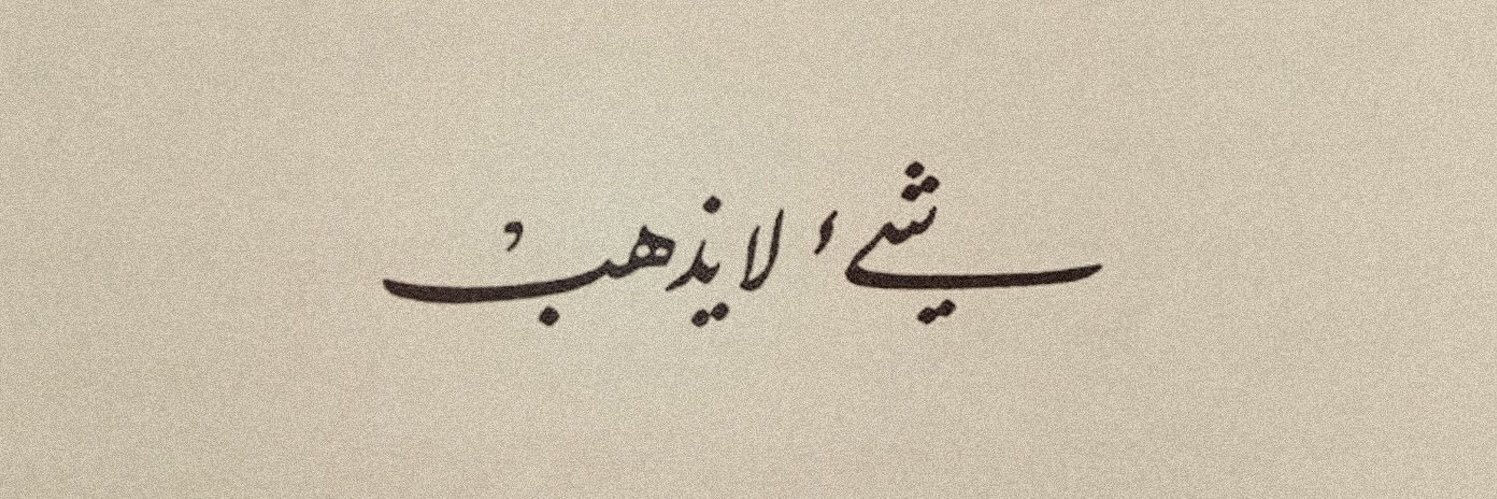 شيء لا يذهبُ